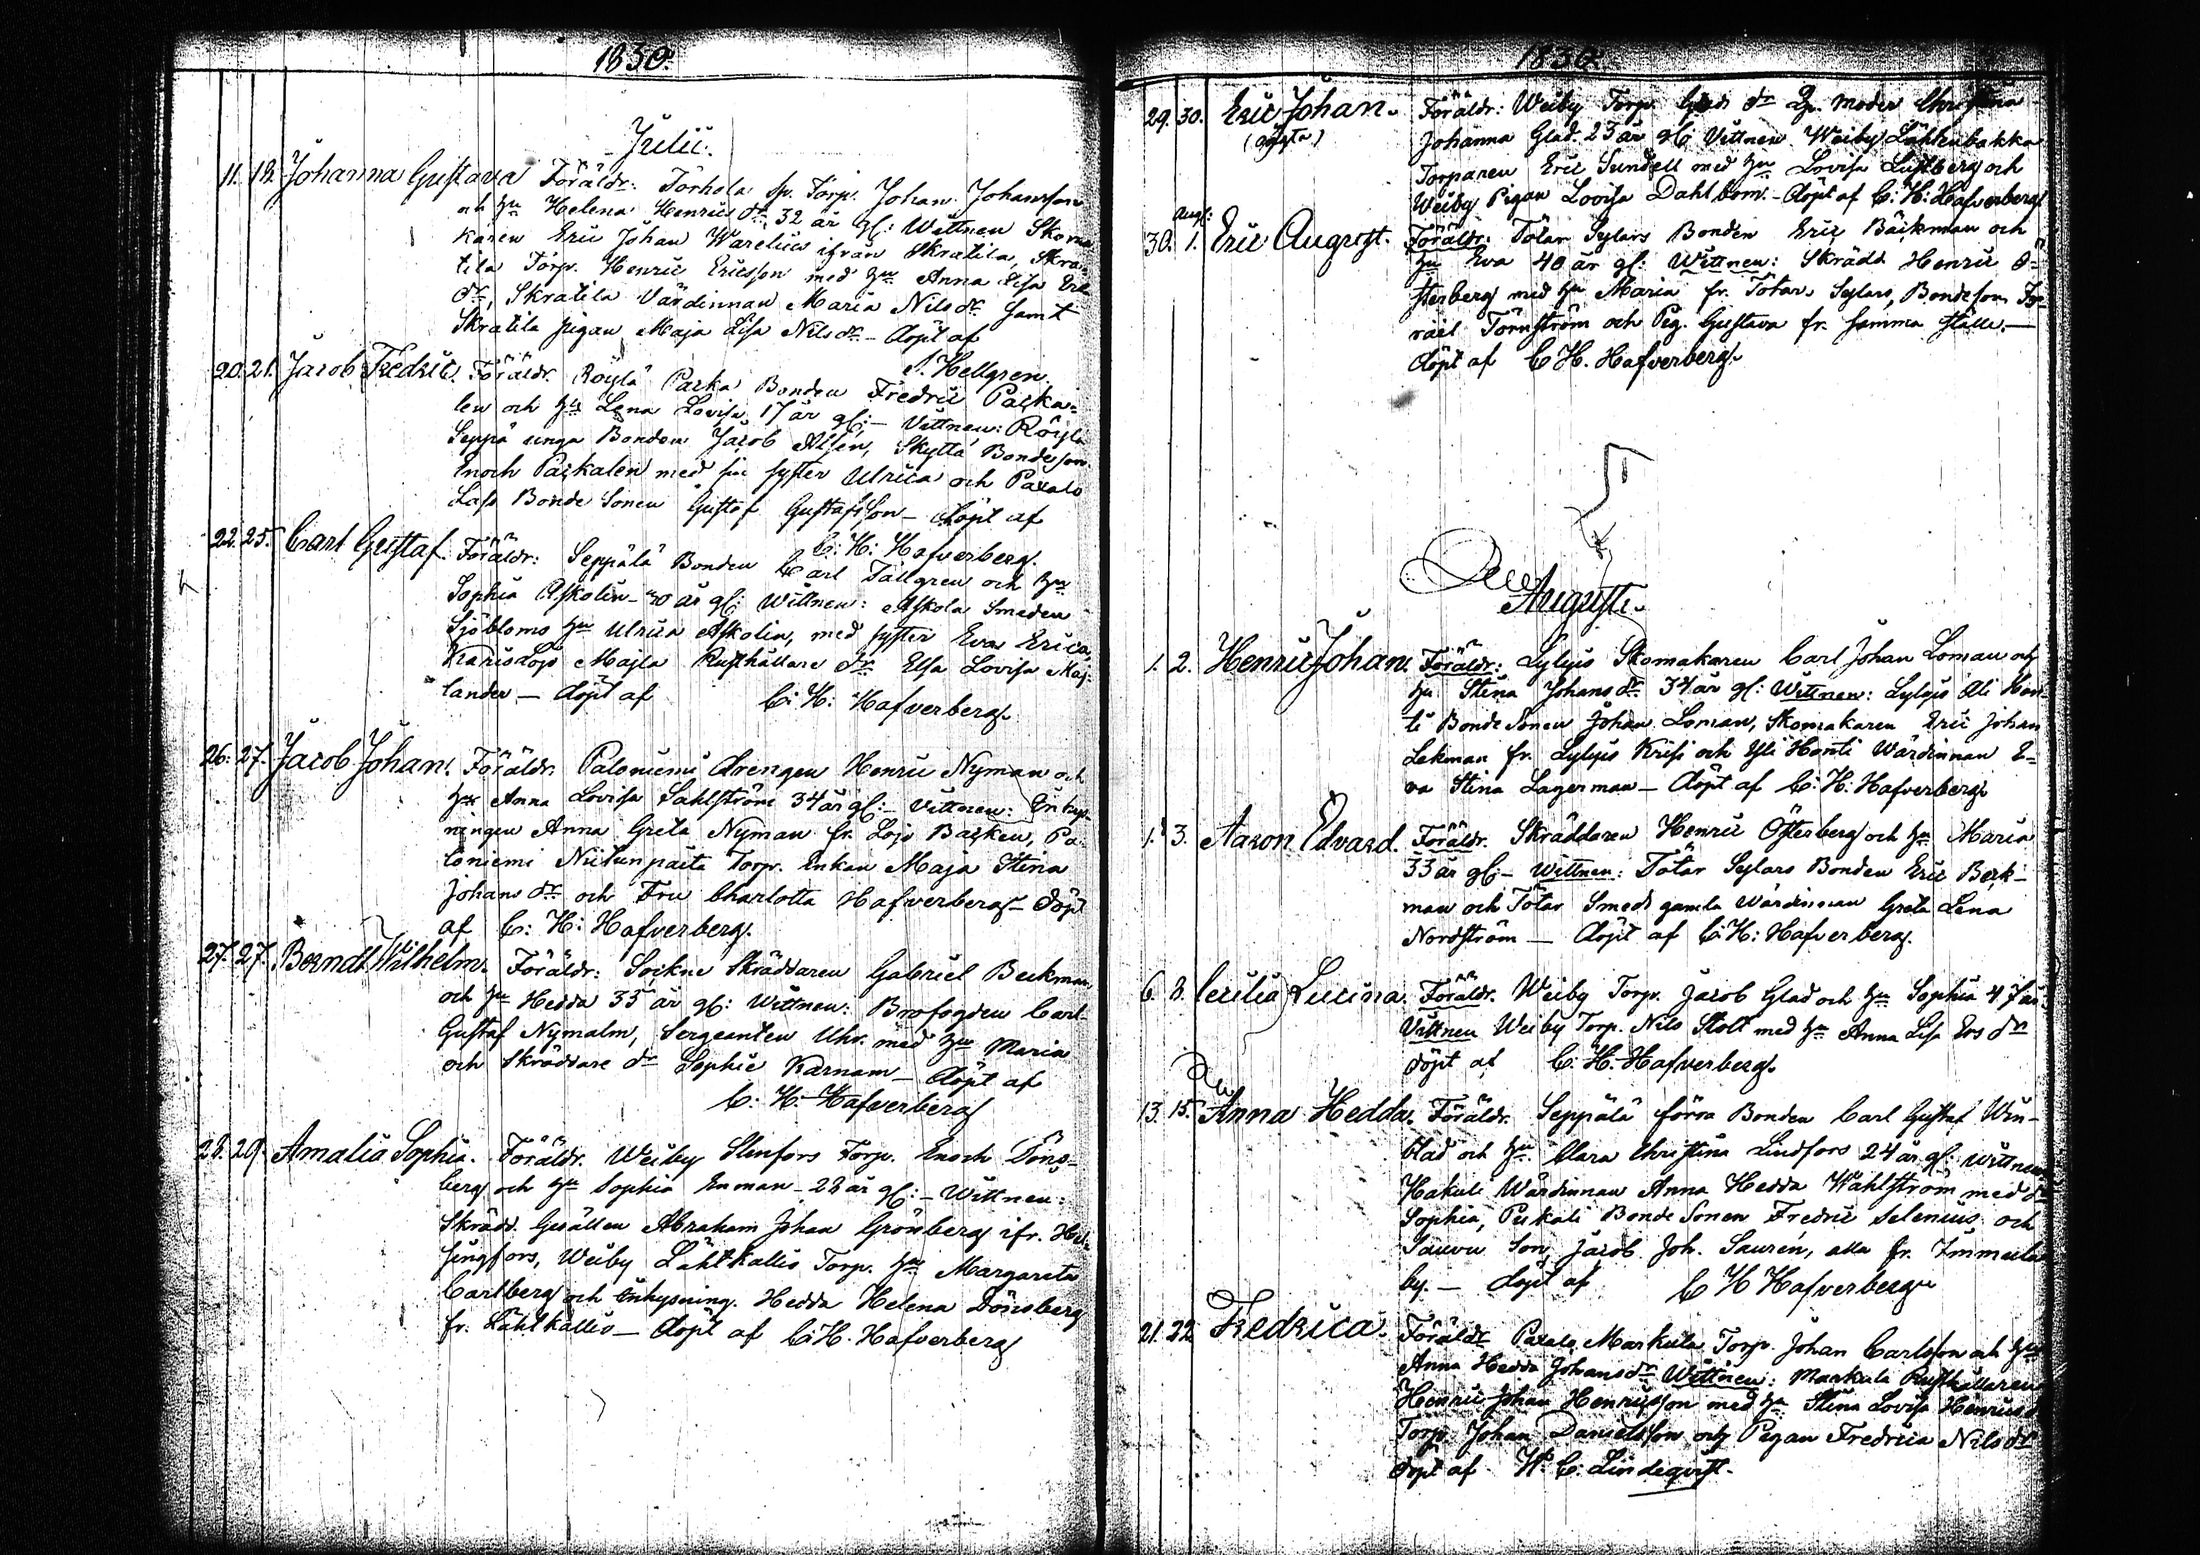 1830.
Julii.
11. 12. Johanna Gustava Föräldr: Torhola Torp. Johan Johansson
och hu Helena Henrics dr. 32 år gl: Wittnen Skoma
karen Eric Johan Warelius ifrån Skratila, Skra
tila Torp. Henric Ericsson med hu Anna Lisa Eric
dr, Skratila Värdinnan Maria Nils dr. samt
Skratila pigan Maja Lisa Nils dr. - döpt af
Hellgren.
20. 21. Jacob Fredric. Föräldr. Röylä Paska Bonden Fredric Paska-
len och hu Lena Lovisa 17 år gl: - Vittnen: Röylä
Seppä unga Bonden Jacob Alsén, Skyttä Bondeson
Enoch Paskalen med sin syster Ulrica och Paxalo
Lass Bonde Sonen Gustaf Gustafsson - döpt af
C: H: Hafverberg.
22. 25. Carl Gustaf. Föräldr: Seppälä Bonden Carl Tallgren och hu
Sophia Askolin - 30 år gl: Wittnen: Askola Smeden
Sjöbloms hu Ulrica Askolin, med syster Eva Erica
Karislojo Majla Rusthållare dr. Elsa Lovisa Maj-
lander - döpt af C: H: Hafverberg.
26. 27. Jacob Johan. Föräldr. Paloniemi drengen Henric Nyman och
hu Anna Lovisa Sahlström 34 år gl: - Vittnen: Enhys-
ningen Anna Greta Nyman fr. Lojo Backen, Pa-
loniemi Torp. Enkan Maja Stina
Johans dr. och Fru Charlotta Hafverberg - döpt
af C: H: Hafverberg.
27. 27. Berndt Wilhelm. Föräldr: Sockne Skräddaren Gabriel Beckman
och hu Hedda 33 år gl: Wittnen: Brofogden Carl
Gustaf Nymalm, Sergeanten Uhr. med hu Maria
och Skräddare dr Sophie Karnam - döpt af
C: H: Hafverberg
28. 29. Amalia Sophia. Föräldr. Weiby Stenfors Torp. Enoch Döns-
berg och hu Sophia Enman - 28 år gl: - Wittnen:
Skrädd. Gesällen Abraham Johan Grönberg ifr. Hel-
singfors, Weiby Lähtkällis Torp. hu Margareta
Carlberg och Inhysning. Hedda Helena Dönsberg
fr. Lähtkällis - döpt af C: H. Hafverberg
1830.
29. 30. Eric Johan. Föräldr: Weiby Torp. Glads dr moder Christina
(oägta) Johanna Glad. 23 år gl: Vittnen Weiby Lähtenbakka
Torparen Eric Sundell med hu Lovisa Lustberg och
Weiby Pigan Lovisa Dahlbom. - döpt af C: H: Hafverberg
Augs:
30. 1. Eric August. Föräldr: Totar Sylars Bonden Eric Bäckman och
hu Eva 40 år gl: Wittnen: Skrädd Henric Ö-
sterberg med hu Maria fr. Totar, Sylars Bondeson Is-
rael Törnström och Pig. Gustava fr. samma ställe, -
döpt af C. H. Hafverberg.
Augusti.
1. 2. Henric Johan. Föräldr: Lylyis Skomakaren Carl Johan Loman och
hu Stina Johans dr. 34 år gl: Wittnen: Lylyis Ali Hon-
ti Bonde Sonen Johan Loman, Skomakaren Eric Johan
Lekman fr. Lylyis Krisi och Yli Honti Wärdinnan E-
va Stina Lagerman - döpt af C: H: Hafverberg
1. 3. Aaron Edvard. Föräldr. Skräddaren Henric Österberg och hu Maria
33 år gl: - Wittnen: Totar Sylars Bonden Eric Beck-
man och Totar Smeds gamla Wärdinnan Greta Lena
Nordström - döpt af C: H: Hafverberg.
6. 8. Cecilia Lucina. Föräldr. Weiby Torp. Jacob Glad och hu Sophia 47 år
Vittnen Weiby Torp. Nils Stolt med hu Anna Lisa Ers dr
döpt af C: H. Hafverberg.
13. 15. Anna Hedda. Föräldr. Seppälä förra Bonden Carl Gustaf Win-
blad och hu Clara Christina Lindfors 24 år gl: Wittnen
Hakuli Wärdinnan Anna Hedda Wahlström med dr
Sophia, Puskali Bonde Sonen Fredric Selenius och
Sauvu Son Jacob Joh. Saurén, alla fr. Immerla
by. - döpt af C H Hafverberg
21. 22. Fredrica. Föräldr Paxalo Markula Torp. Johan Carlsson och hu
Anna Hedda Johans dr Wittnen: Markula Rusthållaren
Henric Johan Henricsson med hu Stina Lovisa Henrics d
Torp. Johan Danielsson och Pigan Fredrica Nils dr
döpt af W. C. Lindeqvist.